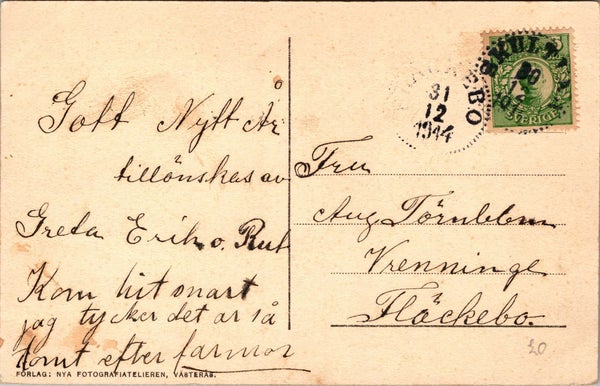 Gott Nytt År
tillönskas av
Greta Erik o. Rut
Kom hit snart
jag tycker det är så
tomt efter farmor
FÖRLAG: NYA FOTOGRAFIATELIEREN, VÄSTERÅS.
BO
31
12
1914
SKULTUNA
30
SVERIGE
Fru
Aug Törnblom
Vrenninge
Fläckebo.
20